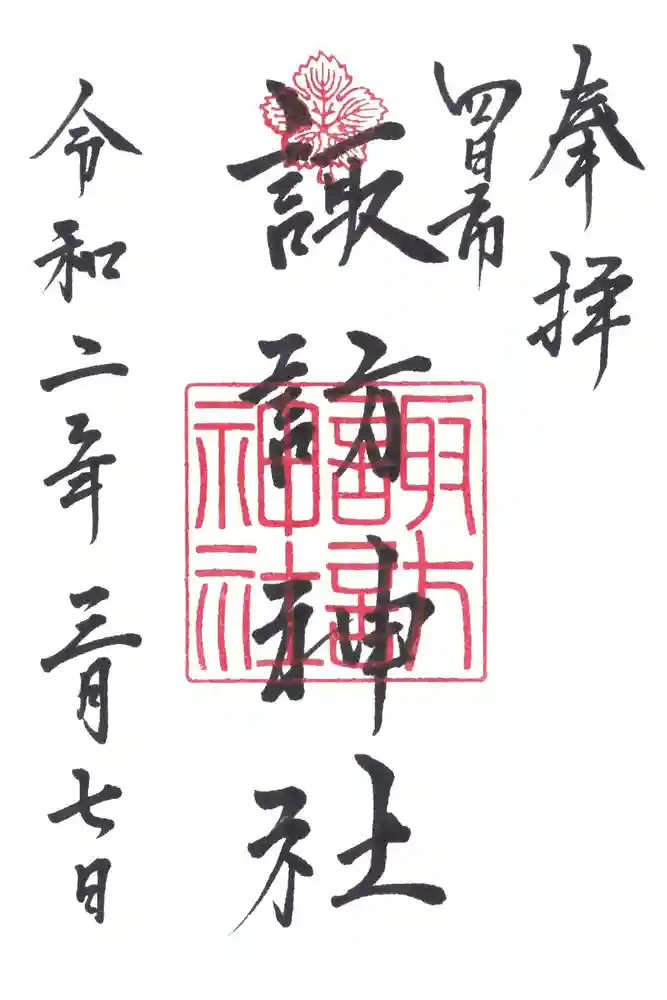 奉拝
四日市
諏訪神社
諏訪神社
令和二年三月七日